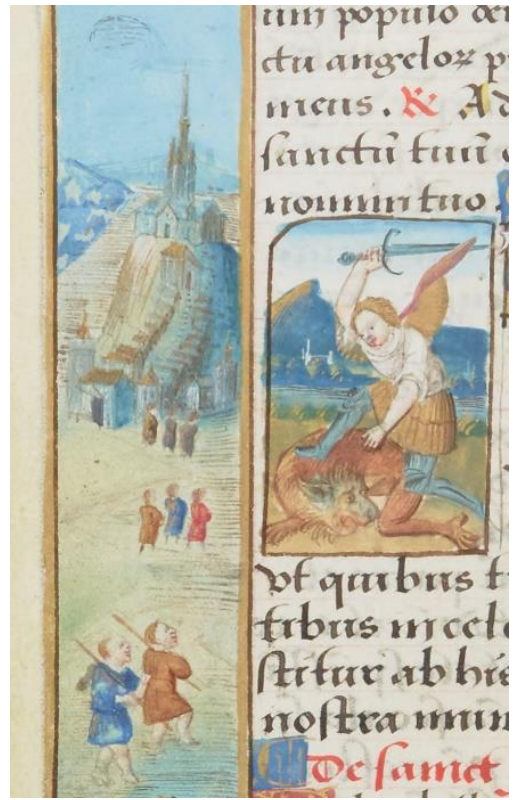 um populo
ctu angeloꝝ p
meus. ℟ A
sanctū tuū
nomini tuo
vt quibus t
tibus in cel
stitur ab his
nostra mun
De sanct